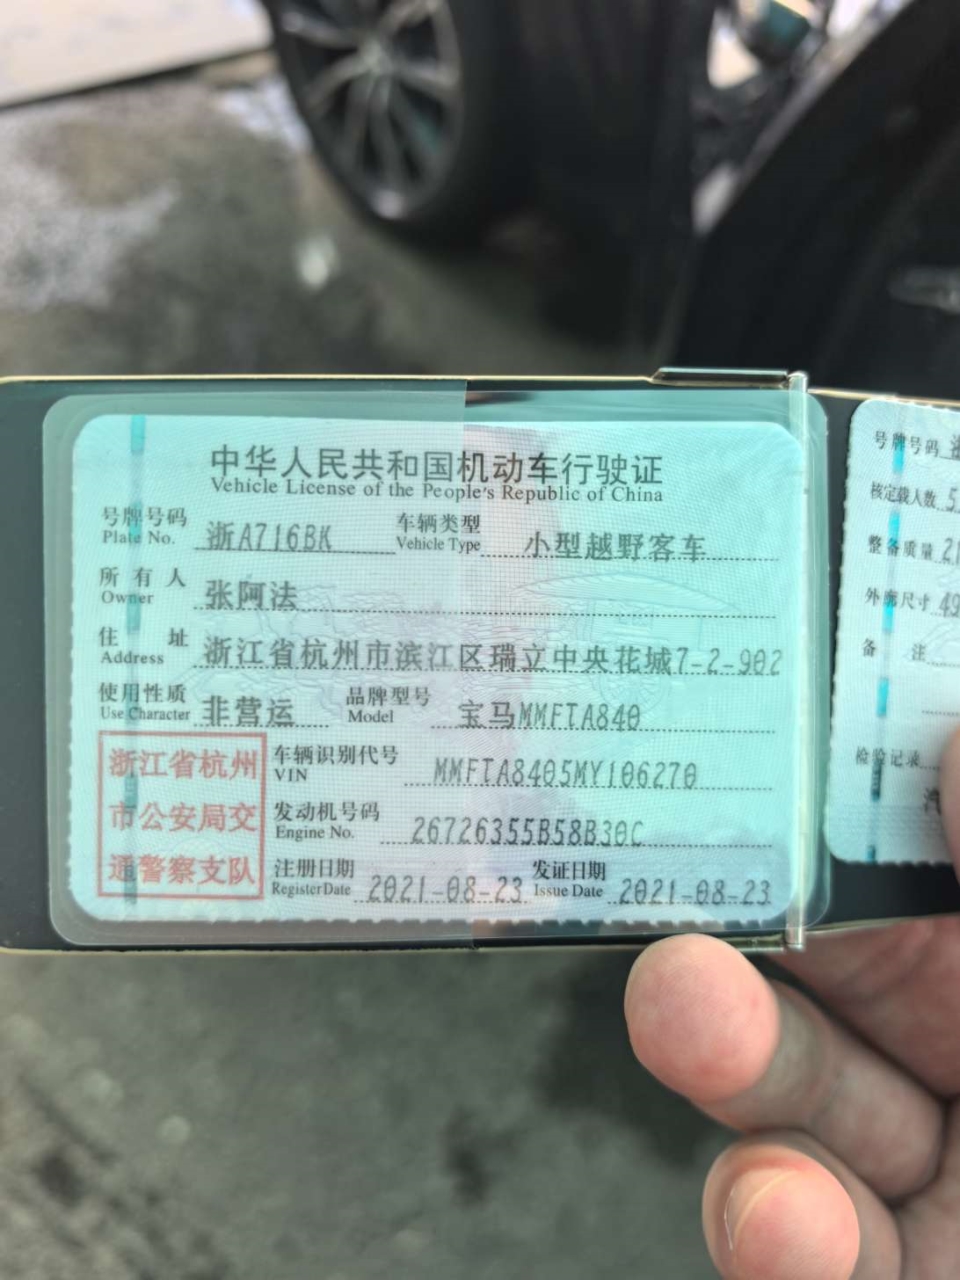 中华人民共和国机动车行驶证
Vehicle License of the People's Republic of China
号牌号码 浙A716BK 车辆类型 小型越野客车
Plate No. Vehicle Type
所有人 张阿法
Owner
住址 浙江省杭州市滨江区瑞立中央花城7-2-902
Address
使用性质 非营运 品牌型号 宝马MMFTA840
Use Character Model
浙江省杭州
市公安局交
通警察支队
车辆识别代号 MMFTA8405MY106270
VIN
发动机号码 26726355B58B30C
Engine No.
注册日期 2021-08-23 发证日期 2021-08-23
Register Date Issue Date
号牌号码
核定载人数 5
整备质量 21
外廓尺寸 49
备注
检验记录